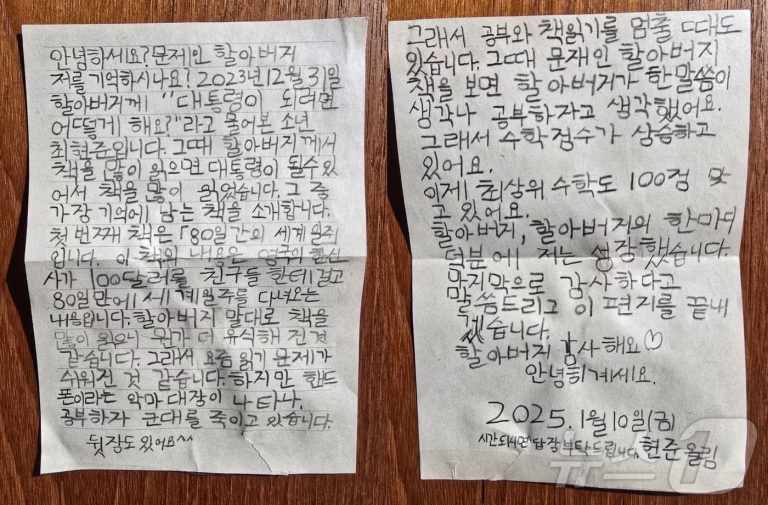 안녕하세요? 문제인 할아버지
저를 기억하시나요? 2023년 12월 31일
할아버지께 "대통령이 되려면
어떻게 해요?"라고 물어본 소년
최현준입니다. 그때 할아버지께서
책을 많이 읽으면 대통령이 될 수 있
어서 책을 많이 읽었습니다. 그 중
가장 기억에 남는 책을 소개합니다.
첫 번째 책은 「80일간의 세계일주
입니다. 이 책의 내용은 영국의 한 신
사가 100달러를 친구들 한테 걸고
80일만에 세계일주를 다녀오는
내용입니다. 할아버지 말대로 책을
많이 읽으니 뭔가 더 유식해 진 것
같습니다. 그래서 요즘 읽기 문제가
쉬워진 것 같습니다. 하지만 핸드
폰이라는 악마 대장이 나타나,
공부하자 군대를 죽이고 있습니다.
뒷장도 있어요^^
그래서 공부와 책읽기를 멈출 때도
있습니다. 그때 문재인 할아버지
책을 보면 할아버지가 한 말씀이
생각나 공부하자고 생각했어요.
그래서 수학점수가 상승하고
있어요.
이제 최상위 수학도 100점 맞
고 있어요.
할아버지, 할아버지의 한마디
덕분에 저는 성장했습니다.
마지막으로 감사하다고
말씀드리고 이 편지를 끝내
겠습니다.
할아버지 감사해요♡
안녕히계세요.
2025. 1월 10일(금)
시간되시면 답장 부탁드립니다. 현준 올림
뉴스1